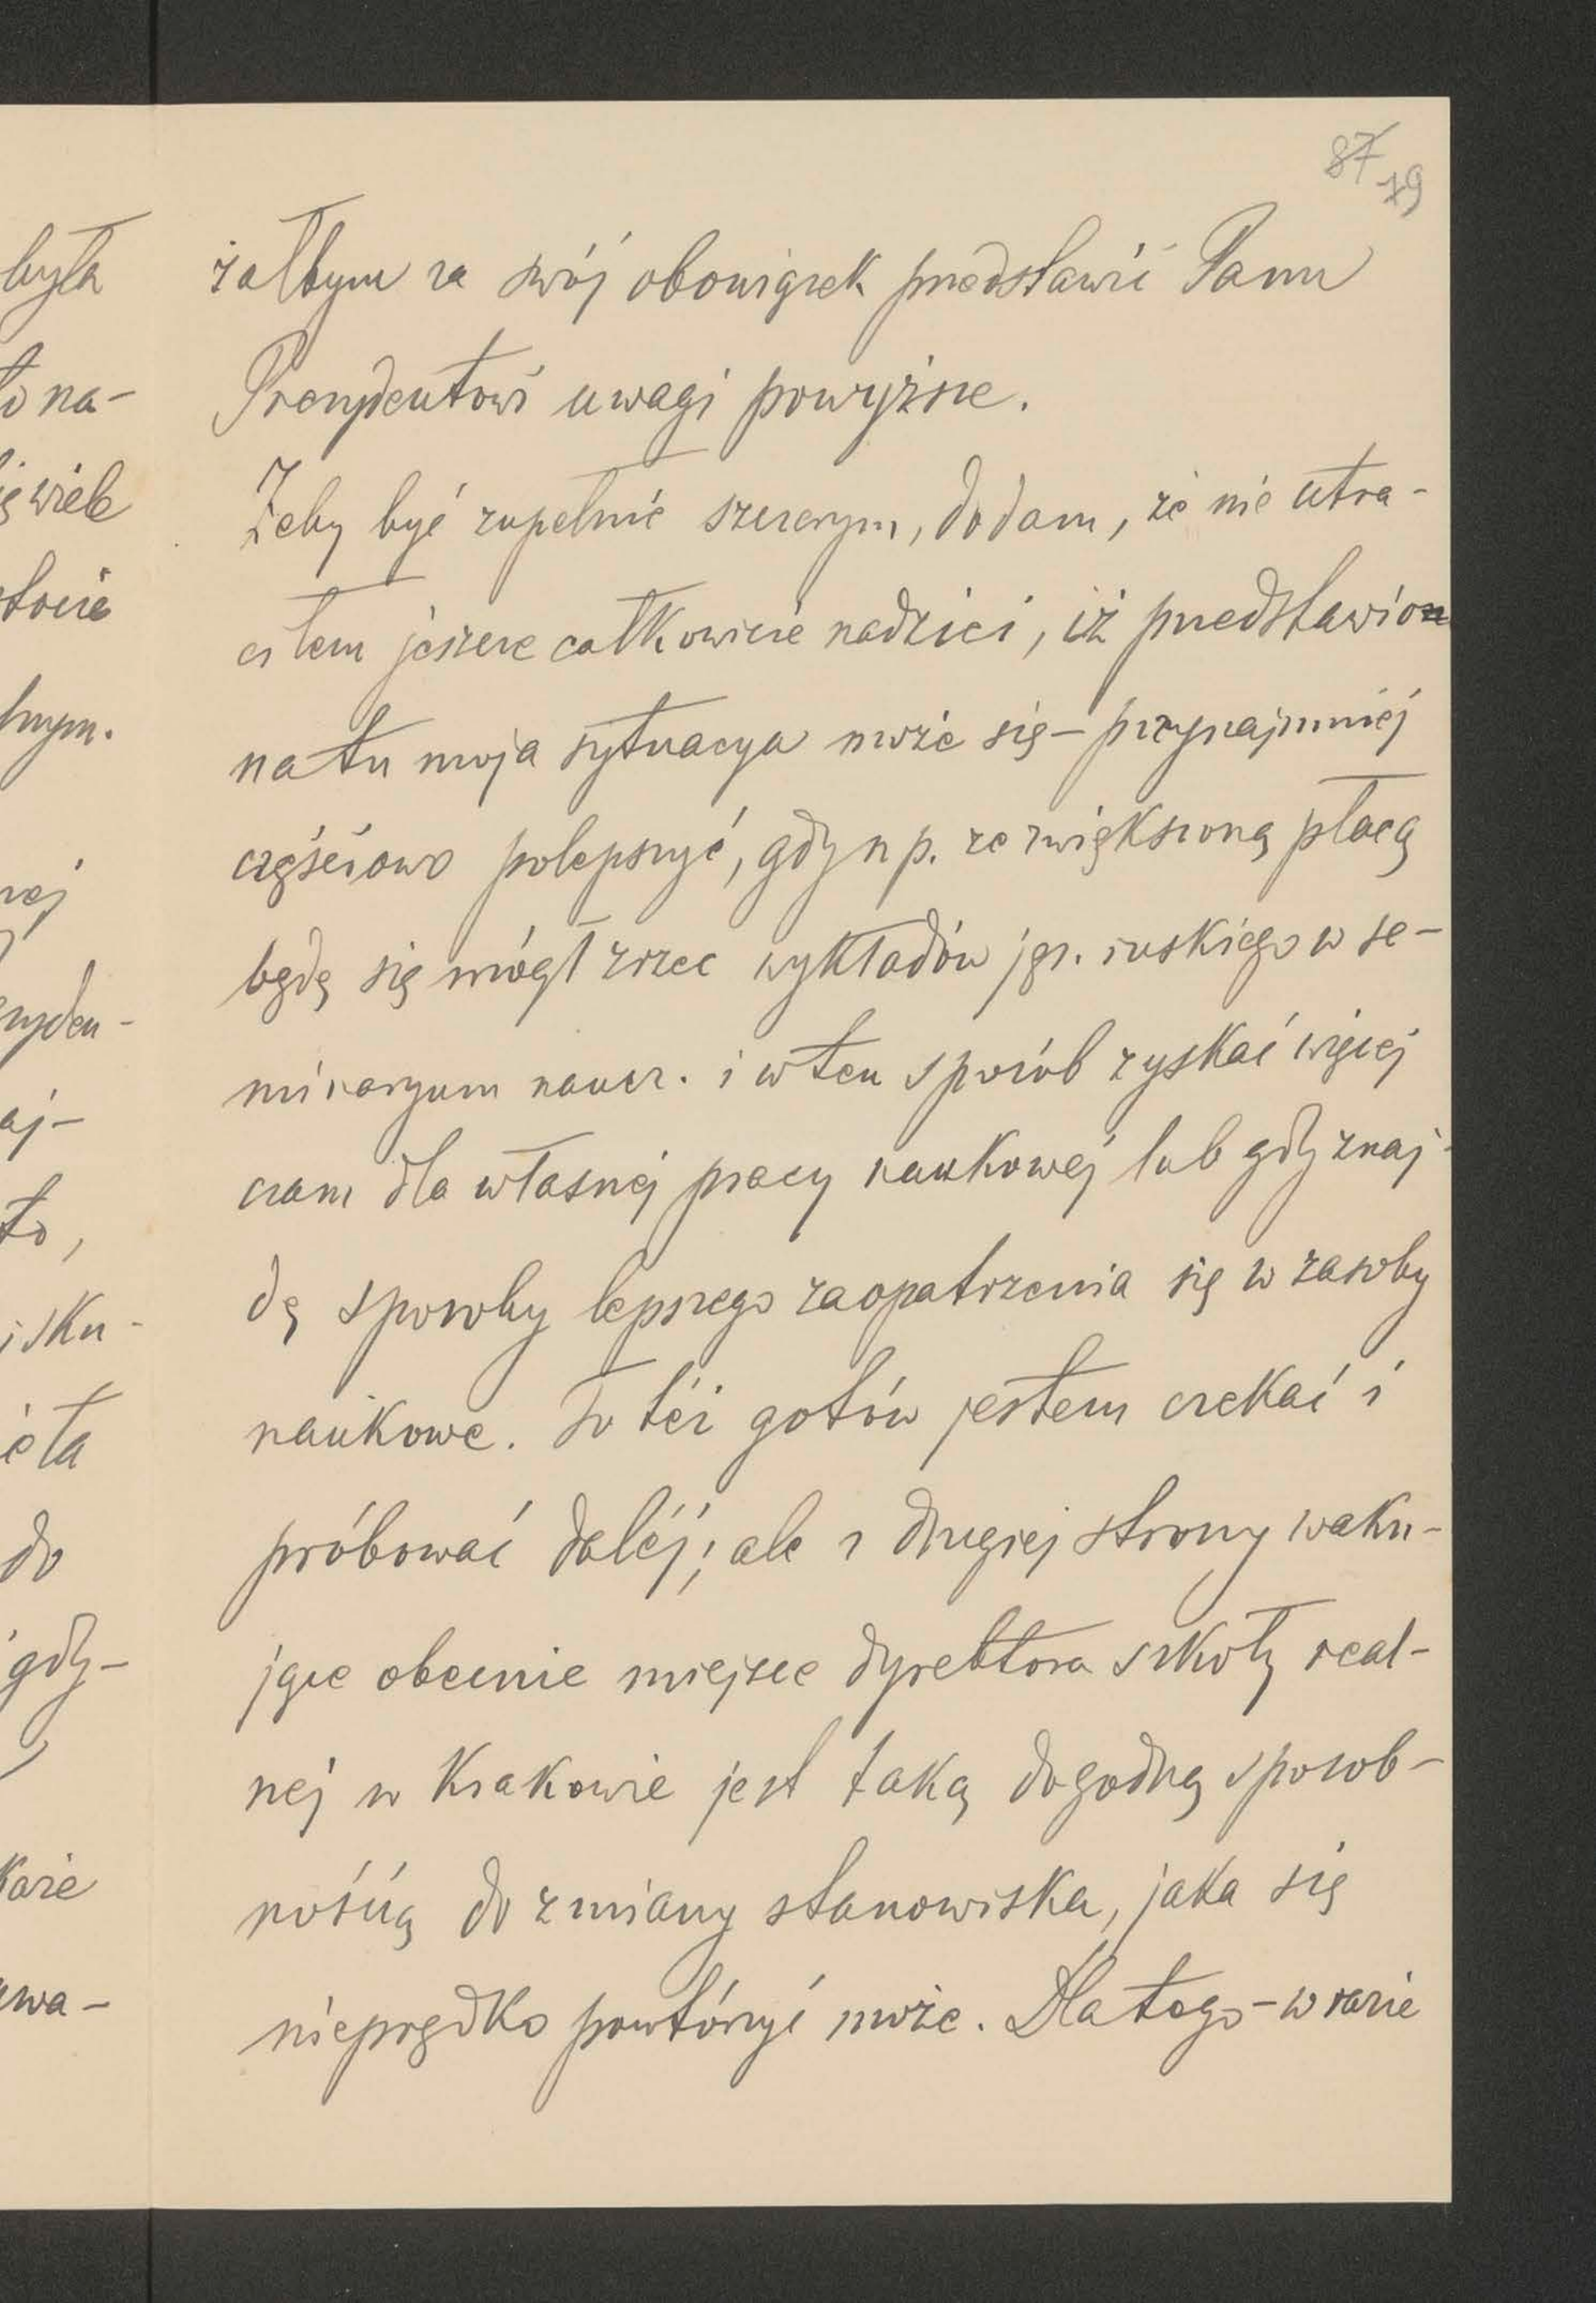 87
79
żałbym za swój obowiązek przedstawić Panu
Prezydentowi uwagi powyższe.
Żeby być zupełnie szczerym, dodam, że nie utra-
ciłem jeszcze całkowicie nadziei, iż przedstawio
na tu moja sytuacya może się – przynajmniej
częściowo polepszyć, gdy n p. ze zwiększoną płacą
będę się mógł zrzec wykładów jęz. ruskiego w se-
minaryum naucz. i w ten sposób zyskać więcej
czasu dla własnej pracy naukowej lub gdy znaj-
dę sposoby lepszego zaopatrzenia się w zasoby
naukowe. To też gotów jestem czekać i
próbować daléj; ale z drugiej strony waku-
jące obecnie miejsce dyrektora szkoły real-
nej w Krakowie jest taką dogodną sposob-
nością do zmiany stanowiska, jaka się
nieprędko powtórzyć może. Dlatego – w razie
była
to na-
ię wiele
stocie
lnym.
nej
ezyden-
aj-
to,
i sku-
eta
do
gdy-
każe
uwa-